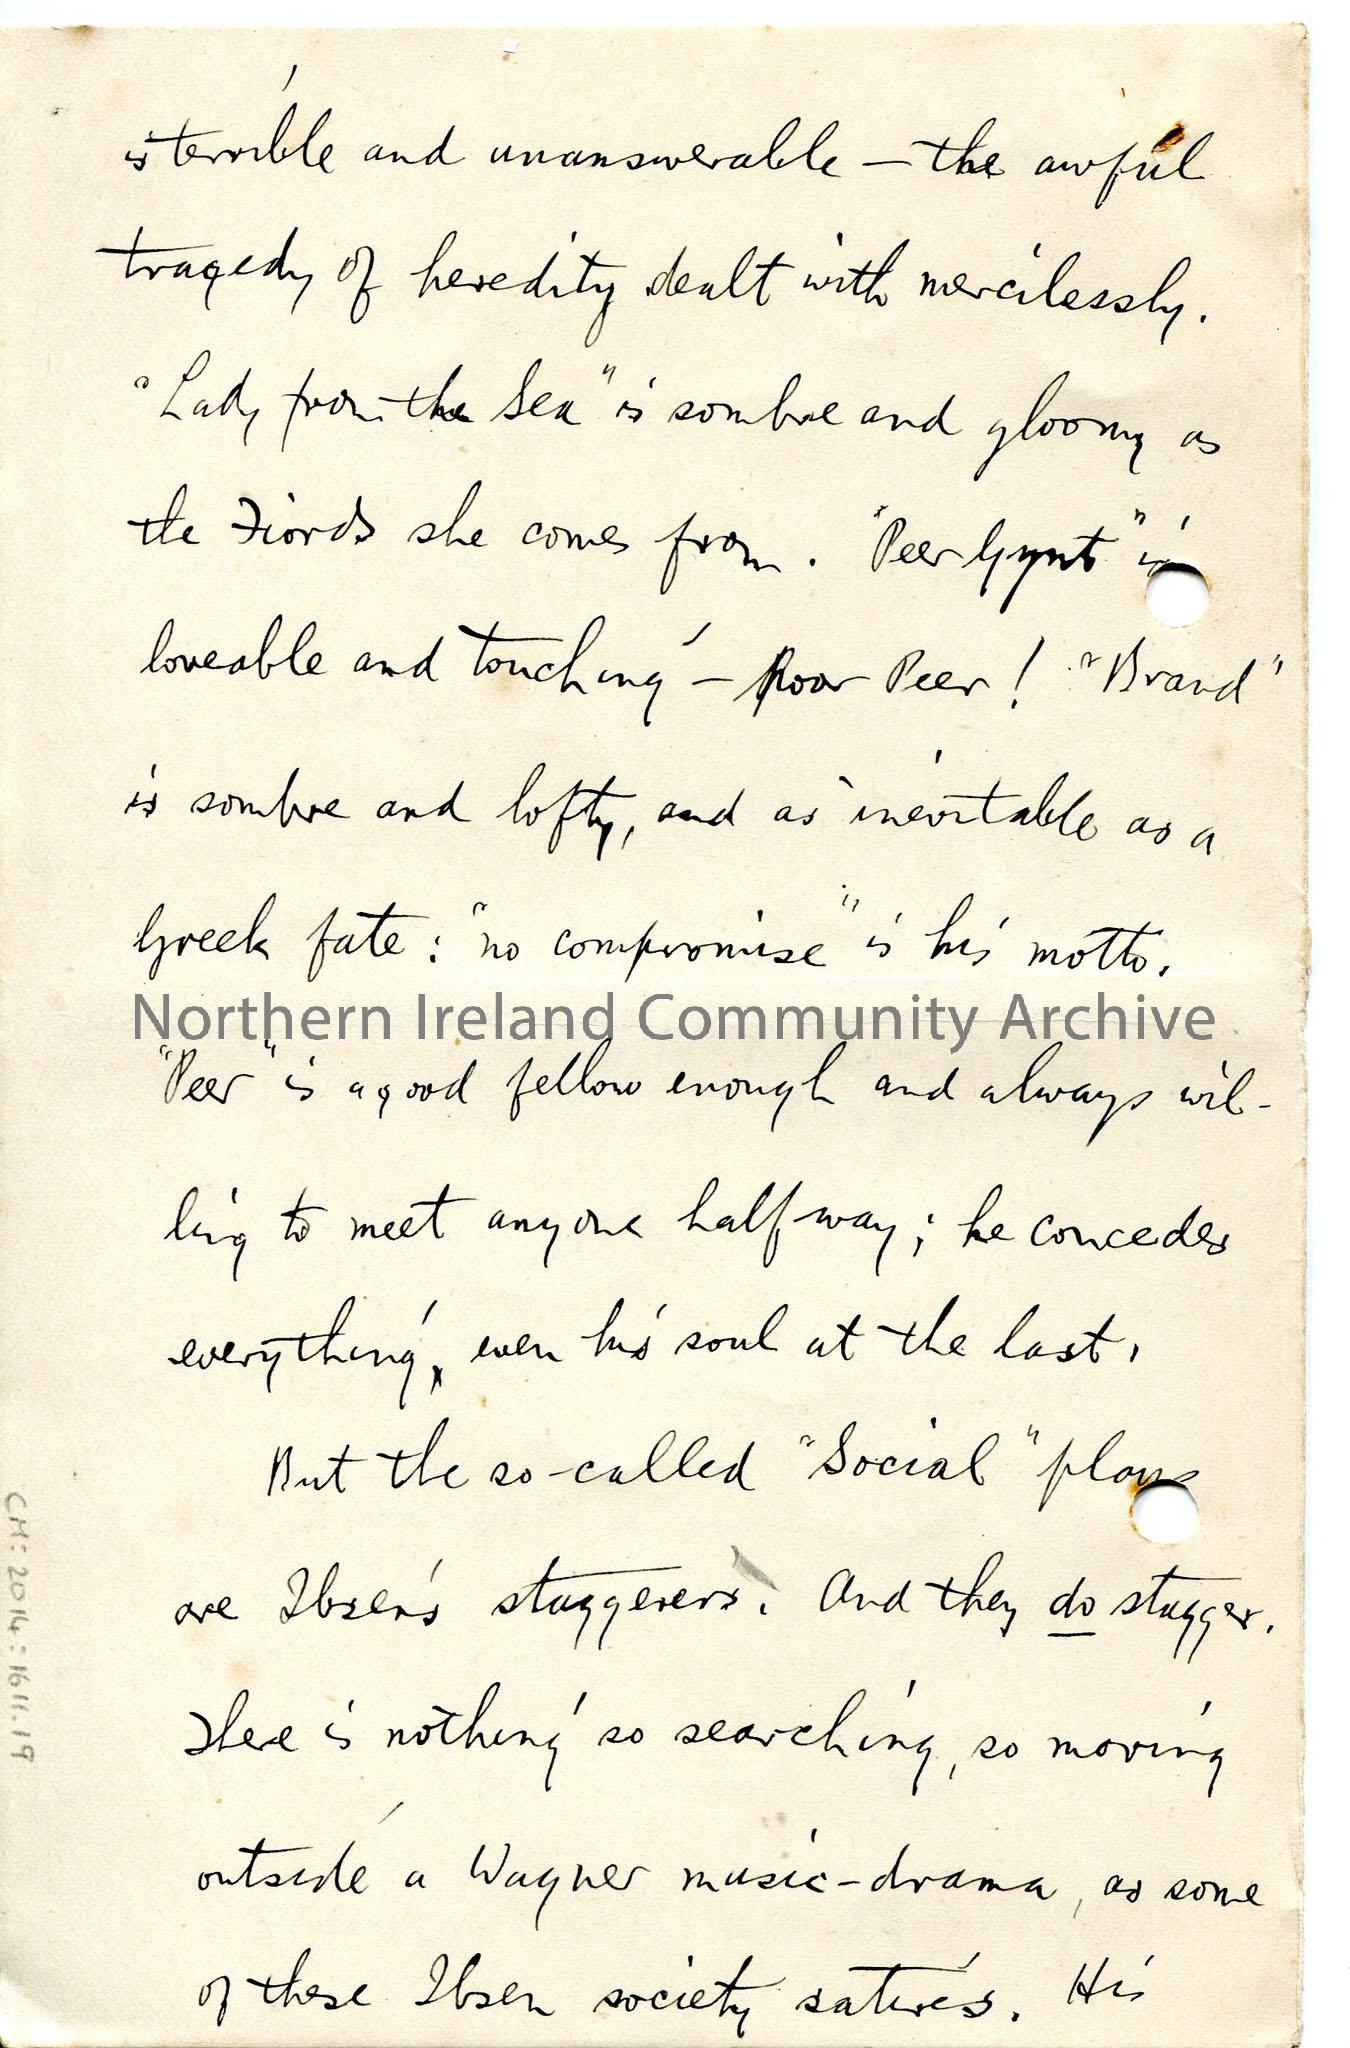 is terrible and unanswerable — the awful
tragedy of heredity dealt with mercilessly.
"Lady from the Sea" is sombre and gloomy as
the Fiords she comes from. "Peer Gynt" is
loveable and touching — Poor Peer! "Brand"
is sombre and lofty, and as inevitable as a
Greek fate: "no compromise" is his motto.
Northern Ireland Community Archive
"Peer" is a good fellow enough and always wil-
ling to meet anyone half way; he concedes
everything, even his soul at the last.
But the so-called "Social" plays
are Ibsen's staggerers. And they do stagger.
There is nothing so searching, so moving
outside a Wagner music-drama, as some
of these Ibsen society satires. His
CM:2014:1611.19